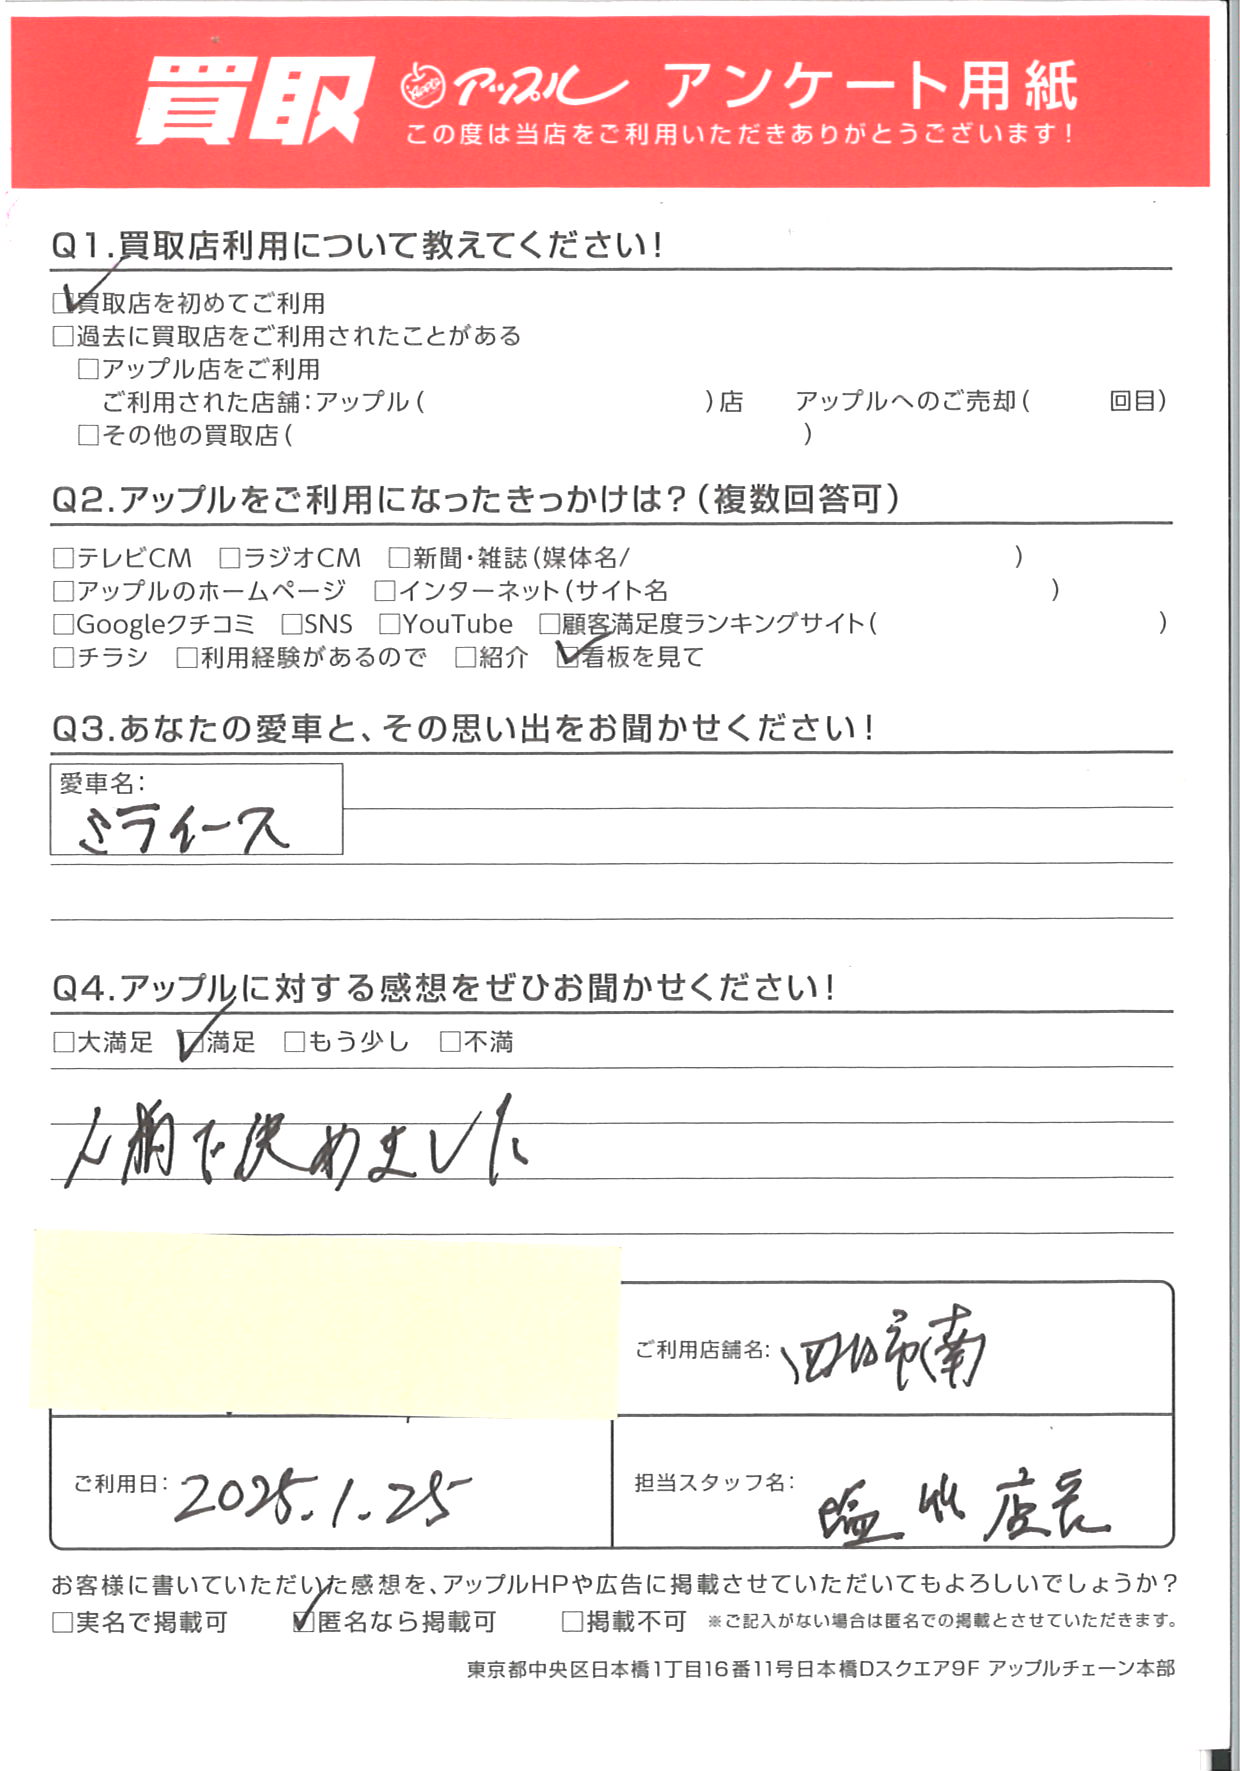 買取 アップル アンケート用紙
この度は当店をご利用いただきありがとうございます!
Q1.買取店利用について教えてください!
☑買取店を初めてご利用
□過去に買取店をご利用されたことがある
□アップル店をご利用
ご利用された店舗:アップル( )店 アップルへのご売却( 回目)
□その他の買取店( )
Q2.アップルをご利用になったきっかけは?(複数回答可)
□テレビCM □ラジオCM □新聞・雑誌(媒体名/ )
□アップルのホームページ □インターネット(サイト名 )
□Googleクチコミ □SNS □YouTube □顧客満足度ランキングサイト( )
□チラシ □利用経験があるので □紹介 ☑看板を見て
Q3.あなたの愛車と、その思い出をお聞かせください!
愛車名:
ミライース
Q4.アップルに対する感想をぜひお聞かせください!
□大満足 ☑満足 □もう少し □不満
人柄で決めました
ご利用店舗名: 四日市南
ご利用日: 2025.1.25
担当スタッフ名: 店長
お客様に書いていただいた感想を、アップルHPや広告に掲載させていただいてもよろしいでしょうか?
□実名で掲載可 ☑匿名なら掲載可 □掲載不可 ※ご記入がない場合は匿名での掲載とさせていただきます。
東京都中央区日本橋1丁目16番11号日本橋Dスクエア9F アップルチェーン本部